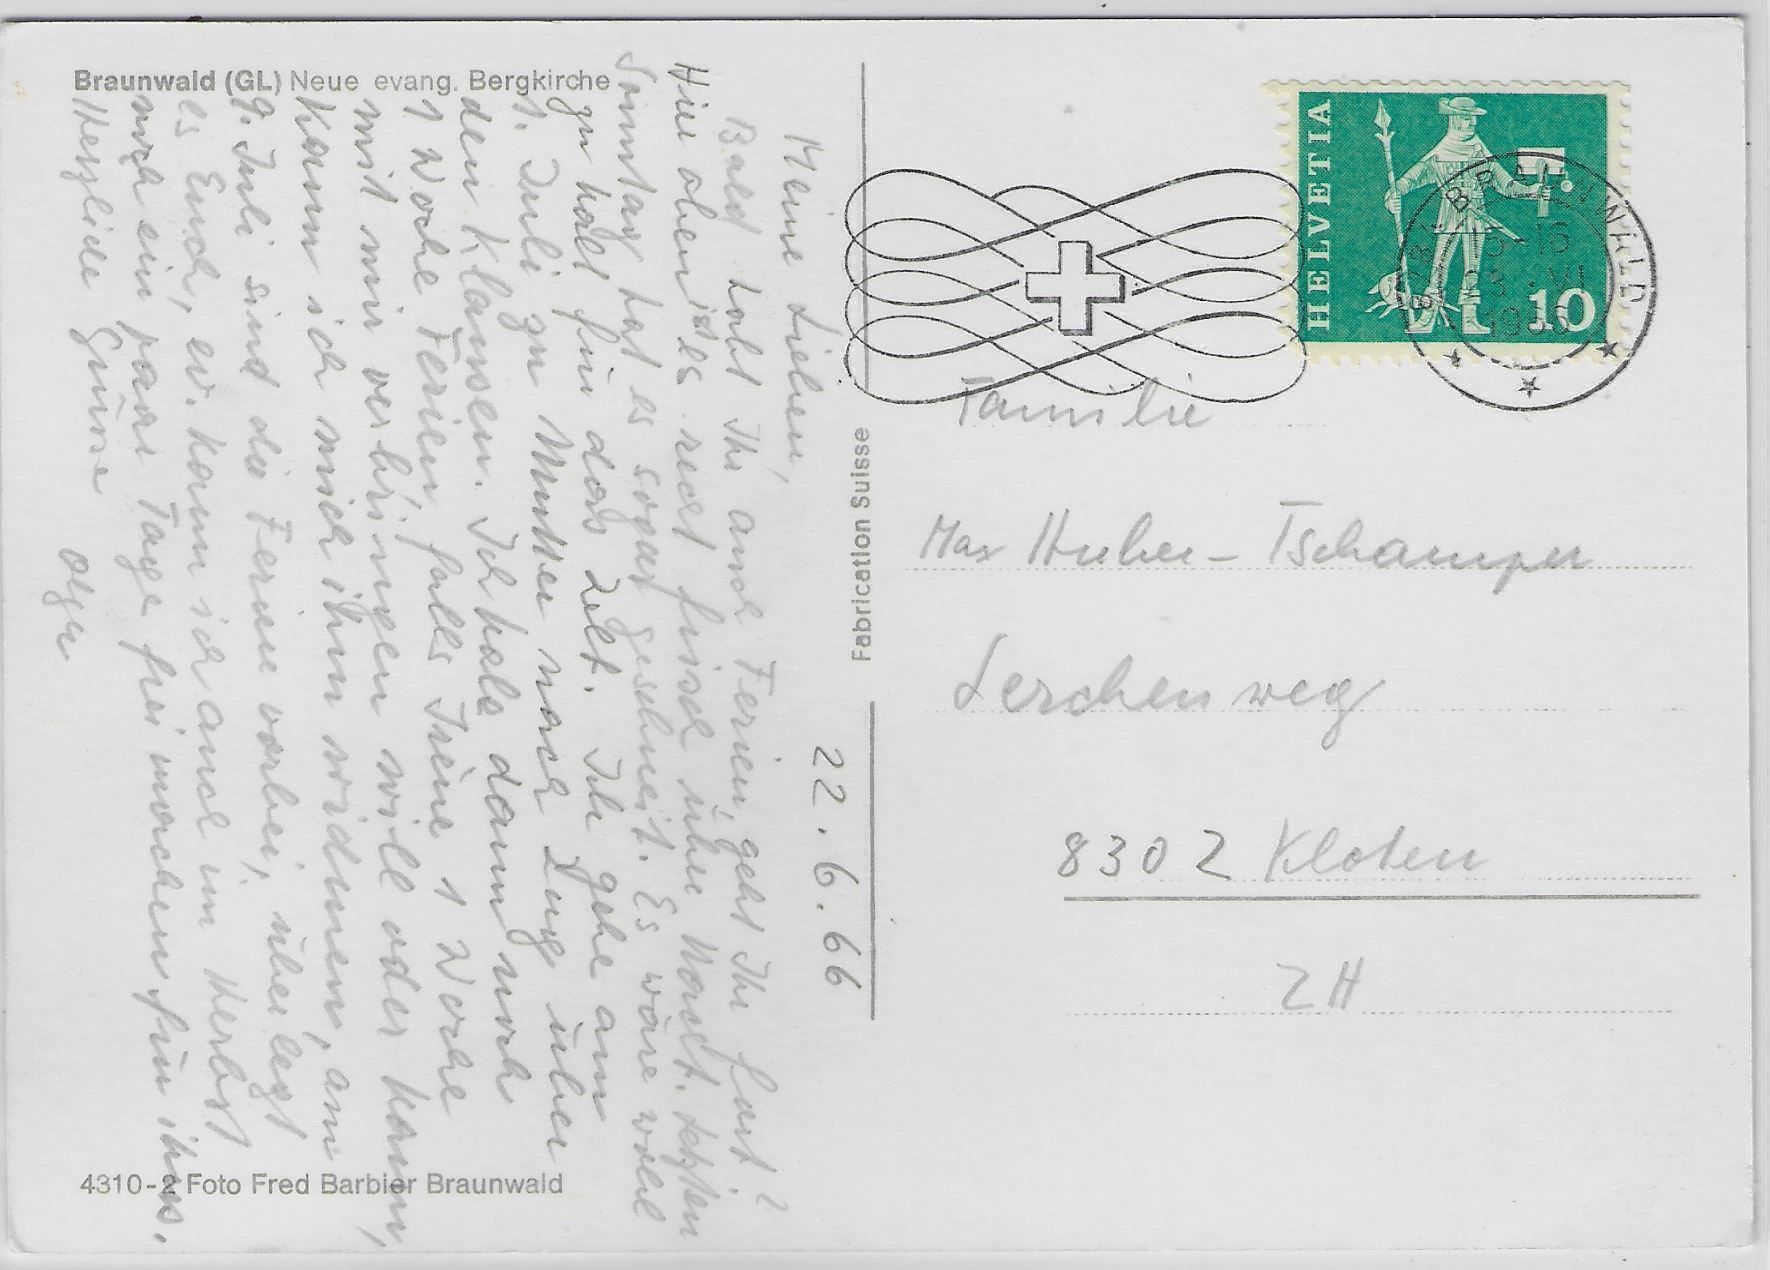 Braunwald (GL) Neue evang. Bergkirche
22.6.66
Meine Lieben,
Bald habt Ihr auch Ferien, geht Ihr fort?
Hier oben ist es recht frisch über Nacht. Letzten
Sonntag hat es sogar geschneit. Es wäre wohl
zu kalt für das Zelt. Ich gehe am
1. Juli zu Mutter nach Zug über
den Klausen. Ich habe dann noch
1 Woche Ferien, falls Irène 1 Woche
mit mir verbringen will oder kann,
kann ich mich ihm widmen, am
9. Juli sind die Ferien vorbei, überlegt
es Euch, ev. kann ich auch im Herbst
noch ein paar Tage frei machen für ihns.
Herzliche Grüsse
Olga
4310-2 Foto Fred Barbier Braunwald
Fabrication Suisse
HELVETIA
10
BRAUNWALD
15-16
VI
1966
Familie
Max Huber-Tschamper
Lerchenweg
8302 Kloten
ZH